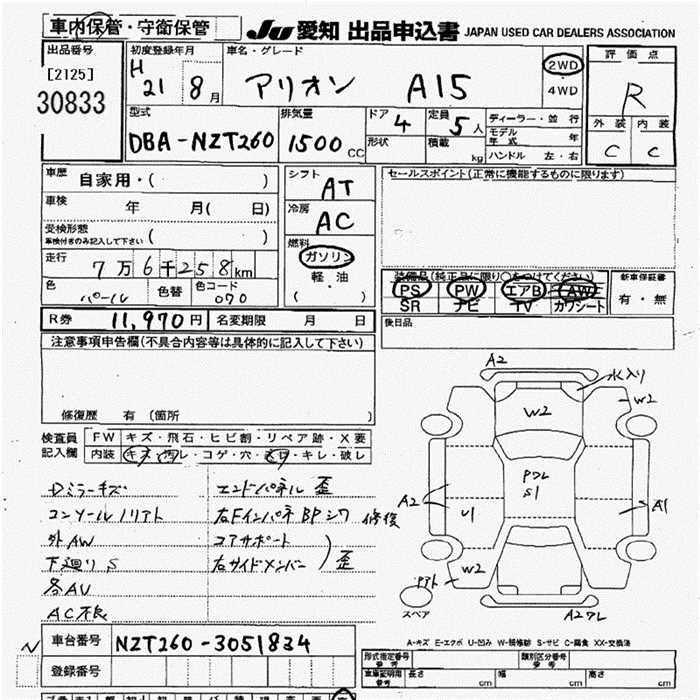 車内保管・守衛保管
JU 愛知 出品申込書 JAPAN USED CAR DEALERS ASSOCIATION
出品番号
[2125]
30833
初度登録年月
H 21 8月
車名・グレード
アリオン A15
2WD
・
4WD
評価点
R
外装 内装
C C
型式
DBA-NZT260
排気量
1500CC
ドア
4
定員
5人
形状
積載
kg
ディーラー・並行
モデル年式 年
ハンドル 左・右
車歴
自家用・( )
車検 年 月( 日)
受検形態
車検付きのみ記入して下さい ( )
走行
7万6千258km
色
パール
色替
色コード
070
シフト
AT
冷房
AC
燃料
ガソリン
軽・油
( )
セールスポイント(正常に機能するものに限ります)
装備品(純正品に限り○をつけてください)
PS PW エアB AW
SR ナビ TV カワシート
新車保証書
有・無
後日品
R券 11,970円 名変期限 月 日
注意事項申告欄(不具合内容等は具体的に記入して下さい)
修復歴 有 (箇所 )
検査員
記入欄
FW キズ・飛石・ヒビ割・リペア跡・X要
内装 キズ・汚レ・コゲ・穴・ キレ・破レ
Dミラーキズ
コンソールノリアト
外AW
下廻りS
各AU
AC不良
エンドパネル 歪
右FインパネBPシワ 修復
コアサポート
右サイドメンバー 歪
A2
水入り
W2
W2
Pクレ
S1
A2
U1
A1
W2
スペア
A2クレ
A-キズ E-エクボ U-凹み W-補修跡 S-サビ C-腐食 XX-交換済
車台番号 NZT260-3051834
登録番号
形式指定番号
参考
類別区分番号
参考
車庫証明用
参考
長さ cm 幅 cm 高さ cm